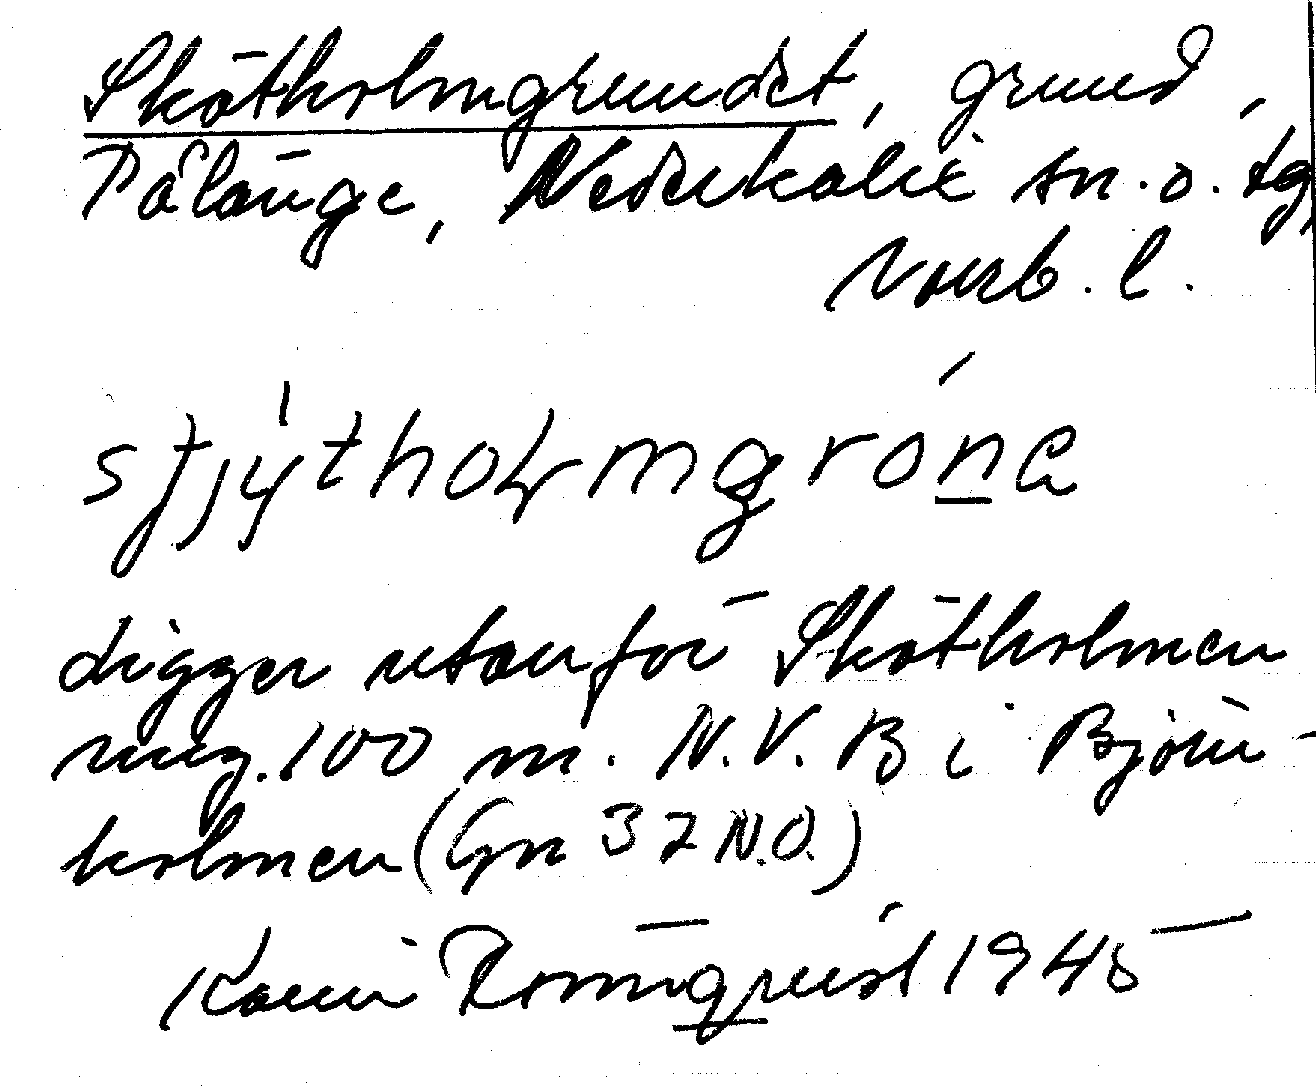 Skötholmgrundet, grund,
Pålänge, Nederkalix sn. o. tg,
Norrb. l.
stjýtholmgróne
ligger utanför Skötholmen
ung. 100 m. N.V. B i Björn-
holmen (Gn 37 N.O.)
Karin Rönnqvist 1945